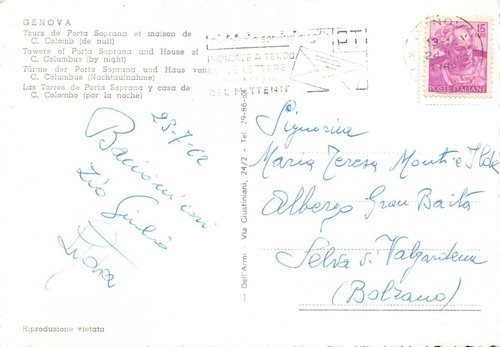 GENOVA
Tours de Porta Soprana et maison de
C. Colomb (de nuit)
Towers of Porta Soprana and House of
C. Columbus (by night)
Türme der Porta Soprana und Haus von
C. Columbus (Nachtaufnahme)
Las Torres de Porta Soprana y casa de
C. Colombo (por la noche)
DEL MITTENTE
15
POSTE ITALIANE
23-7-62
Bacioni cari
Zio Giulio
Lydia
Dell'Armi - Via Giustiniani, 24/2 - Tel. 29-86-68
Signorine
Maria Teresa Monti e Ilde
Albergo Gran Baita
Selva di Valgardena
(Bolzano)
Riproduzione vietata